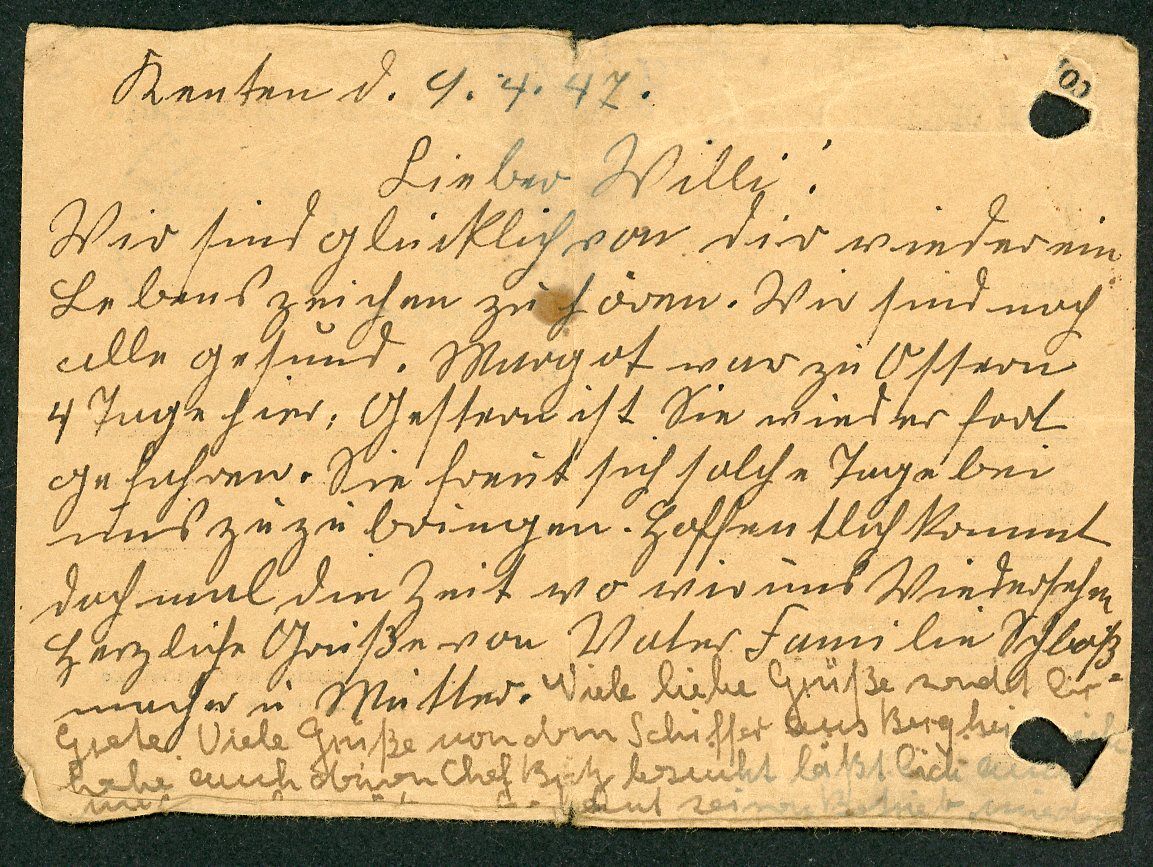 Kenten d. 9. 4. 47.
Lieber Willi!
Wir sind glücklich von dir wieder ein
Lebenszeichen zu hören. Wir sind noch
alle gesund. Margot war zu Ostern
4 Tage hier, Gestern ist Sie wieder fort
gefahren. Sie freut sich solche Tage bei
uns zu zu bringen. Hoffentlich kommt
doch mal die Zeit wo wir uns Wiedersehn
Herzliche Grüße von Vater Familie Schloß
macher u Mutter. Viele liebe Grüße sendet dir
Grete Viele Grüße von dem Schiffer aus Bergheim
habe auch deinen Chef besucht läßt dich auch
seinen Betrieb wieder